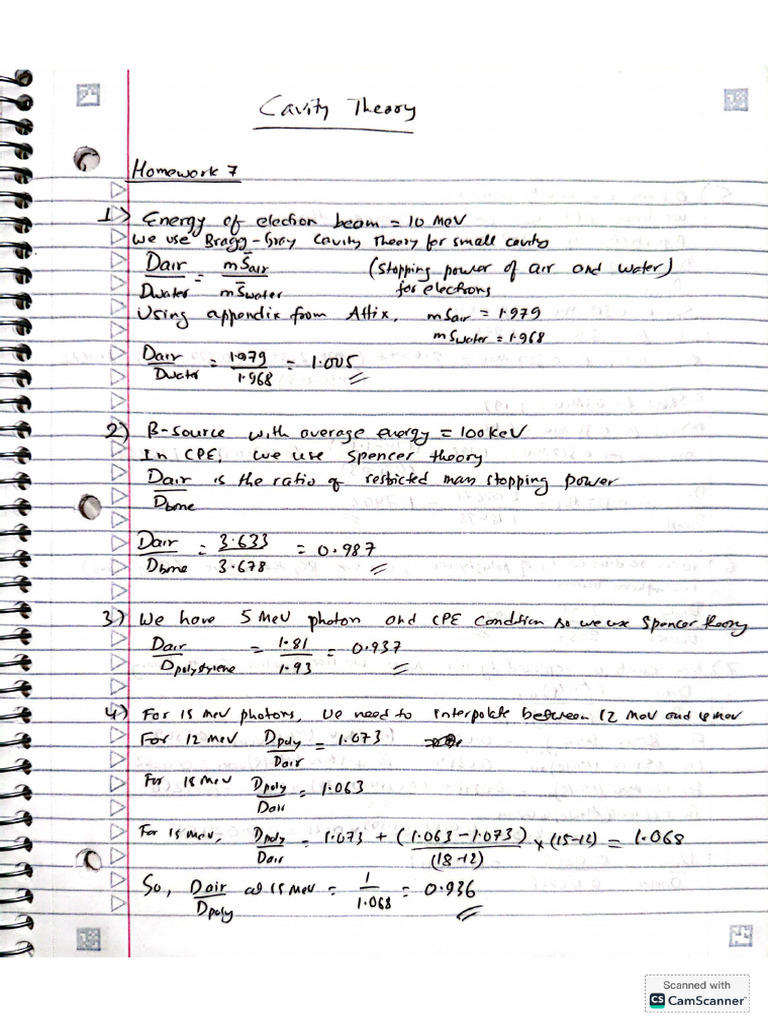 Cavity Theory
Homework 7
1) Energy of electron beam = 10 MeV
We use Bragg-Gray Cavity Theory for small cavity
Dair/Dwater = mS̄air/mS̄water (Stopping power of air and water) for electrons
Using appendix from Attix, mSair = 1.979
mSwater = 1.968
Dair/Dwater = 1.979/1.968 = 1.005
2) β-source with average energy = 100 keV
In CPE, we use Spencer theory
Dair/Dbone is the ratio of restricted mass stopping power
Dair/Dbone = 3.633/3.678 = 0.987
3) We have 5 MeV photon and CPE condition so we use Spencer theory
Dair/Dpolystyrene = 1.81/1.93 = 0.937
4) For 15 MeV photons, we need to interpolate between 12 MeV and 18 MeV
For 12 MeV Dpoly/Dair = 1.073
For 18 MeV Dpoly/Dair = 1.063
For 15 MeV, Dpoly/Dair = 1.073 + (1.063 - 1.073)/(18-12) × (15-12) = 1.068
So, Dair/Dpoly at 15 MeV = 1/1.068 = 0.936
Scanned with
CS CamScanner